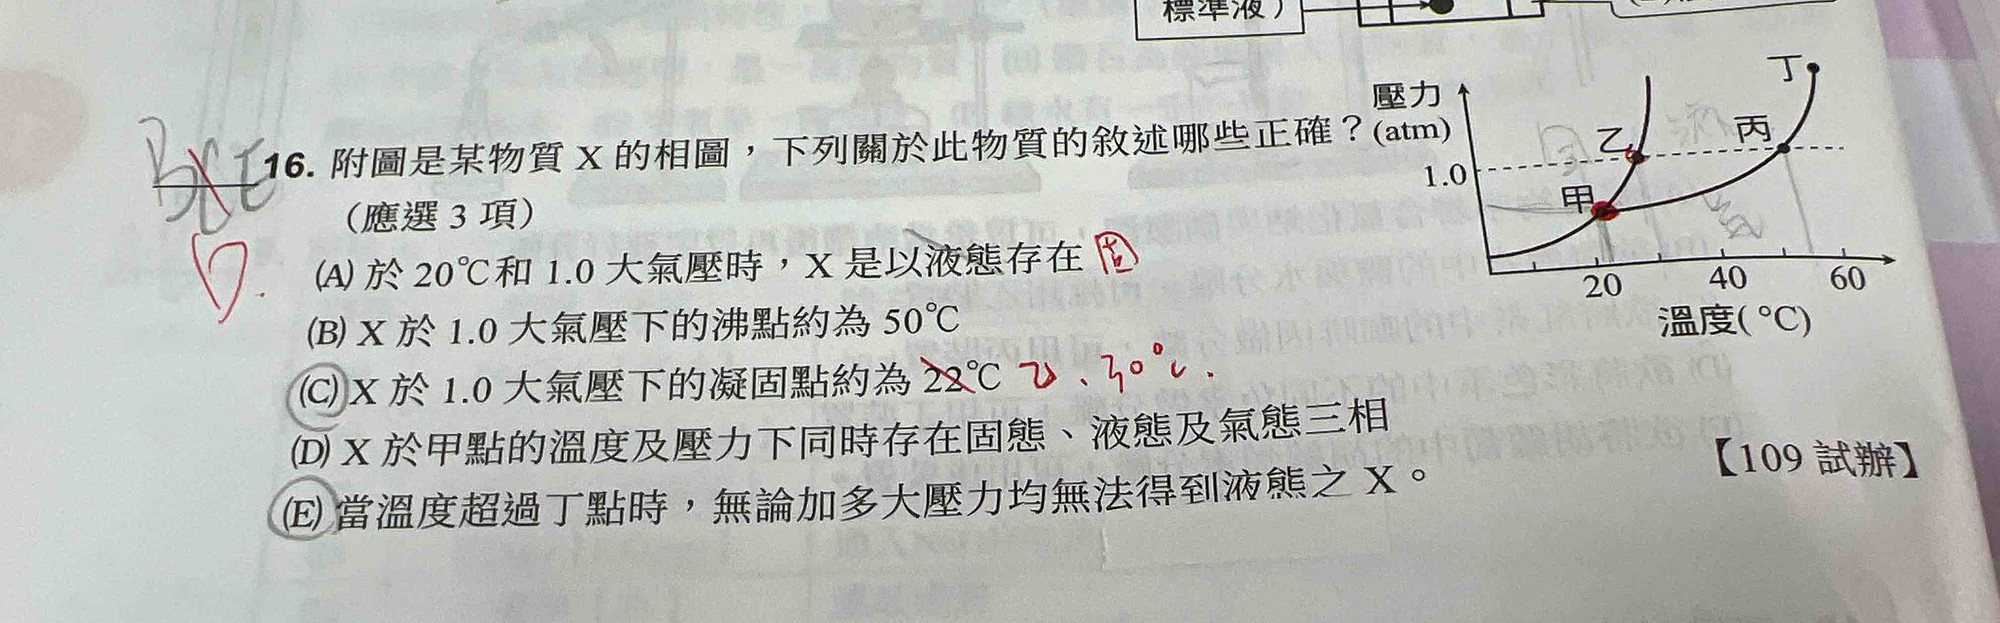 標準液）
BCE
D.
16. 附圖是某物質 X 的相圖，下列關於此物質的敘述哪些正確？
（應選 3 項）
(A) 於 20℃和 1.0 大氣壓時，X 是以液態存在 固
(B) X 於 1.0 大氣壓下的沸點約為 50℃
(C) X 於 1.0 大氣壓下的凝固點約為 22℃ 乙、30℃.
(D) X 於甲點的溫度及壓力下同時存在固態、液態及氣態三相
(E) 當溫度超過丁點時，無論加多大壓力均無法得到液態之 X。
【109 試辦】
壓力
(atm)
1.0
甲
乙
丙
丁
固
液
氣
20 40 60
溫度(℃)